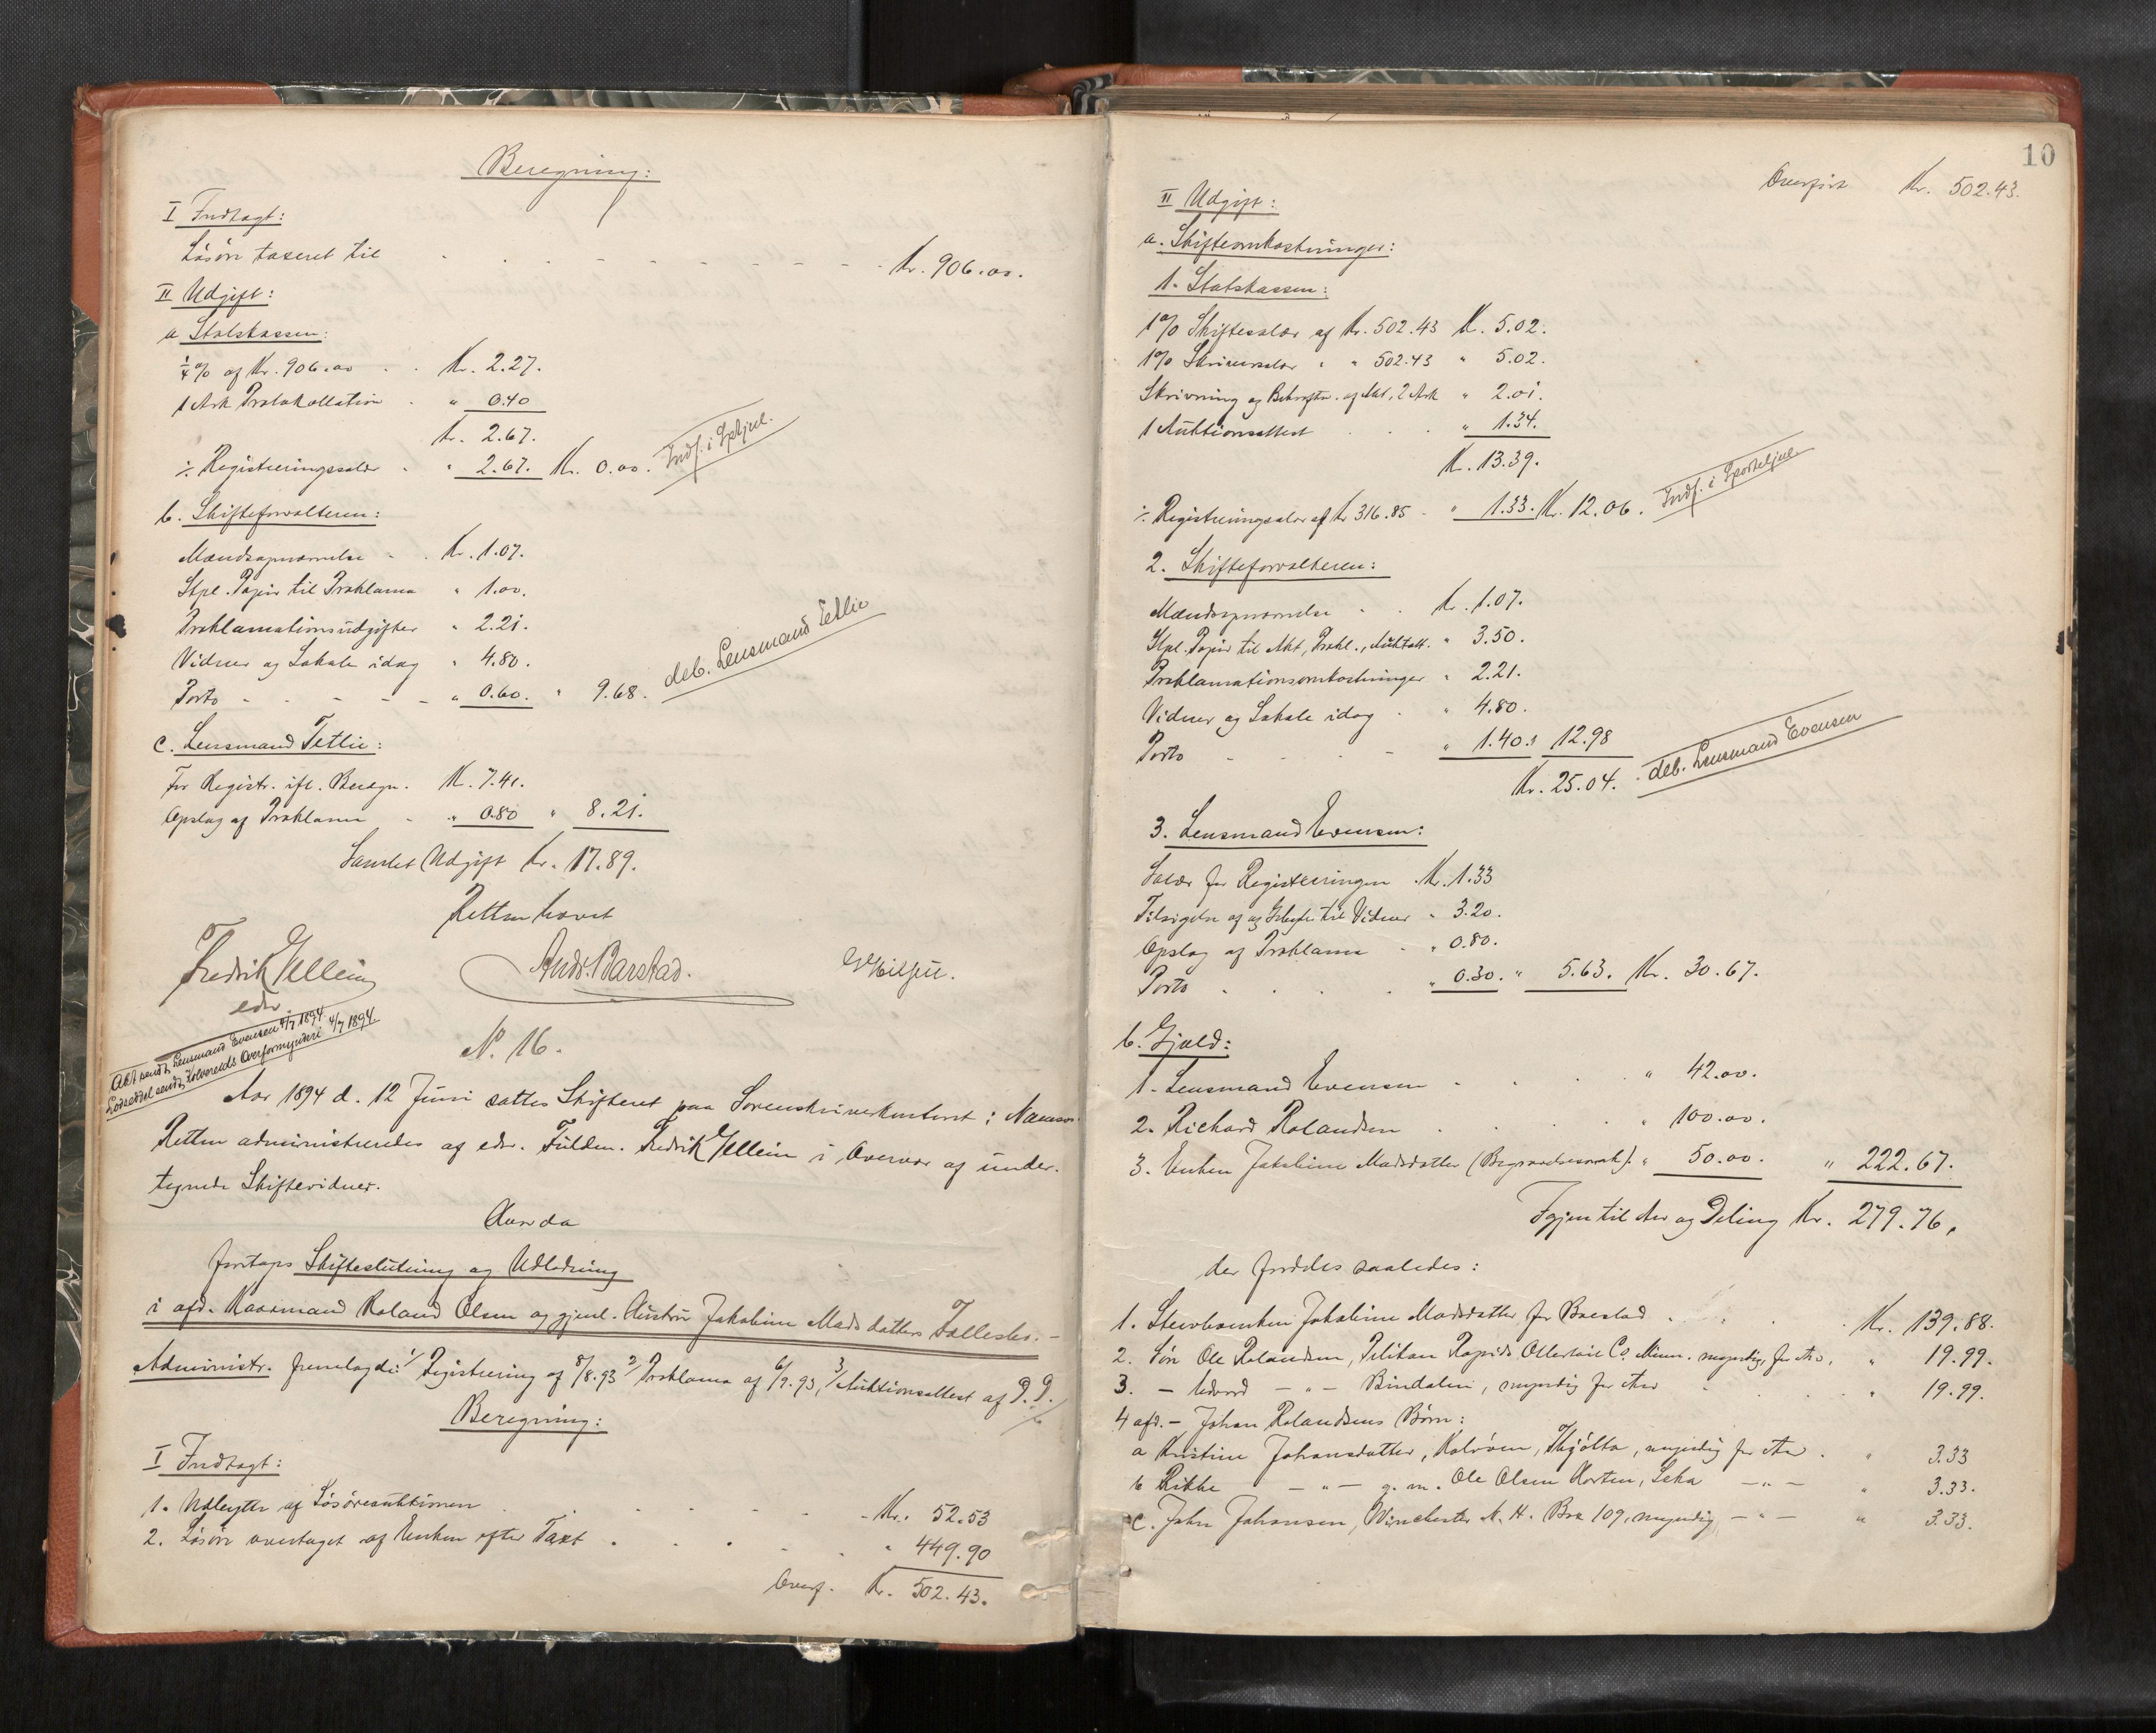 Beregning:
I Indtægt:
Løsøre taxeret til Kr. 906.00.
II Udgift:
a Statskassen:
1/4 % af Kr. 906.00 Kr. 2.27.
1 Ark Protokollation " 0.40
Kr. 2.67.
÷ Registreringssalær " 2.67. Kr. 0.00. Indf. i Sptjnl.
b. Skifteforvalteren:
Mændsopnævnelse Kr. 1.07.
Stpl. Papir til Proklama " 1.00.
Proklamationsudgifter " 2.21.
Vidner og Lokale idag " 4.80.
Porto " 0.60. " 9.68. deb. Lensmand Tetlie
c. Lensmand Tetlie:
For Registr. ifl. Beregn. Kr. 7.41.
Opslag af Proklama " 0.80 " 8.21.
Samlet Udgift Kr. 17.89.
Retten hævet
Fredrik Gellein
edsv.
Ands. Barstad.
N. 16.
Akt sendt Lensmand Evensen 4/7 1894.
Lodseddel sendt Kolvereids Overformynderi 4/7 1894.
Aar 1894 d. 12 Juni sattes Skifteret paa Sorenskriverkontoret i Namsos.
Retten administreredes af edsv. Fuldm. Fredrik Gellein i Overvær af under-
tegnede Skiftevidner.
Hvorda
foretoges Skifteslutning og Udlodning
i afd. Kaarmand Roland Olsen og gjenl. Hustru Jakobine Mads datters Fællesbo. -
Administr. fremlagde: 1/ Registrering af 8/8.93 2/ Proklama af 6/9.93, 3/ Auktionsattest af D. D.
Beregning:
I Indtægt:
1. Udbytte af Løsøreauktionen Kr. 52.53
2. Løsøre overtaget af Enken efter Taxt " 449.90
Overf. Kr. 502.43.
10
Overført Kr. 502.43.
II Udgift:
a. Skifteomkostninger:
1. Statskassen:
1 % Skiftesalær af Kr. 502.43 Kr. 5.02.
1 % Skriversalær " " 502.43 " 5.02.
Skrivning og Bekræftn. af Akt, 2 Ark " 2.01.
1 Auktionsattest " 1.34.
Kr. 13.39.
÷ Registreringssalær af Kr 316.85 " 1.33. Kr. 12.06. Indf. i Sporteljnl.
2. Skifteforvalteren:
Mændsopnævnelse Kr. 1.07.
Stpl. Papir til Akt, Prokl., Auktatt. " 3.50.
Proklamationsomkostninger " 2.21.
Vidner og Lokale idag " 4.80.
Porto " 1.40. " 12.98
Kr. 25.04. deb. Lensmand Evensen
3. Lensmand Evensen:
Salær for Registreringen Kr. 1.33
Tilsigelse af og Gebyr til Vidner " 3.20.
Opslag af Proklama " 0.80.
Porto " 0.30. " 5.63. Kr. 30.67.
b. Gjæld:
1. Lensmand Evensen " 42.00.
2. Richard Rolandsen " 100.00.
3. Enken Jakobine Madsdatter (Begravelsesomk). " 50.00. " 222.67.
Igjen til Arv og Deling Kr. 279.76,
der fordeles saaledes:
1. Stervboenken Jakobine Madsdatter for Boeslod Kr. 139.88.
2. Søn Ole Rolandsen, Pelikan Rapids Ottertail Co. Minn. myndig, for Arv, " 19.99.
3. - Edvard - " - Bindalen, myndig for Arv " 19.99.
4 afd. - Johan Rolandsens Børn:
a Kristine Johansdatter, Kalvøen, Thjøtta, myndig for Arv " 3.33
b Rikke - " - g. m. Ole Olsen Horten, Leka - " - " 3.33.
c. John Johansen, Winchester N. H. Box 109, myndig - " - " 3.33.